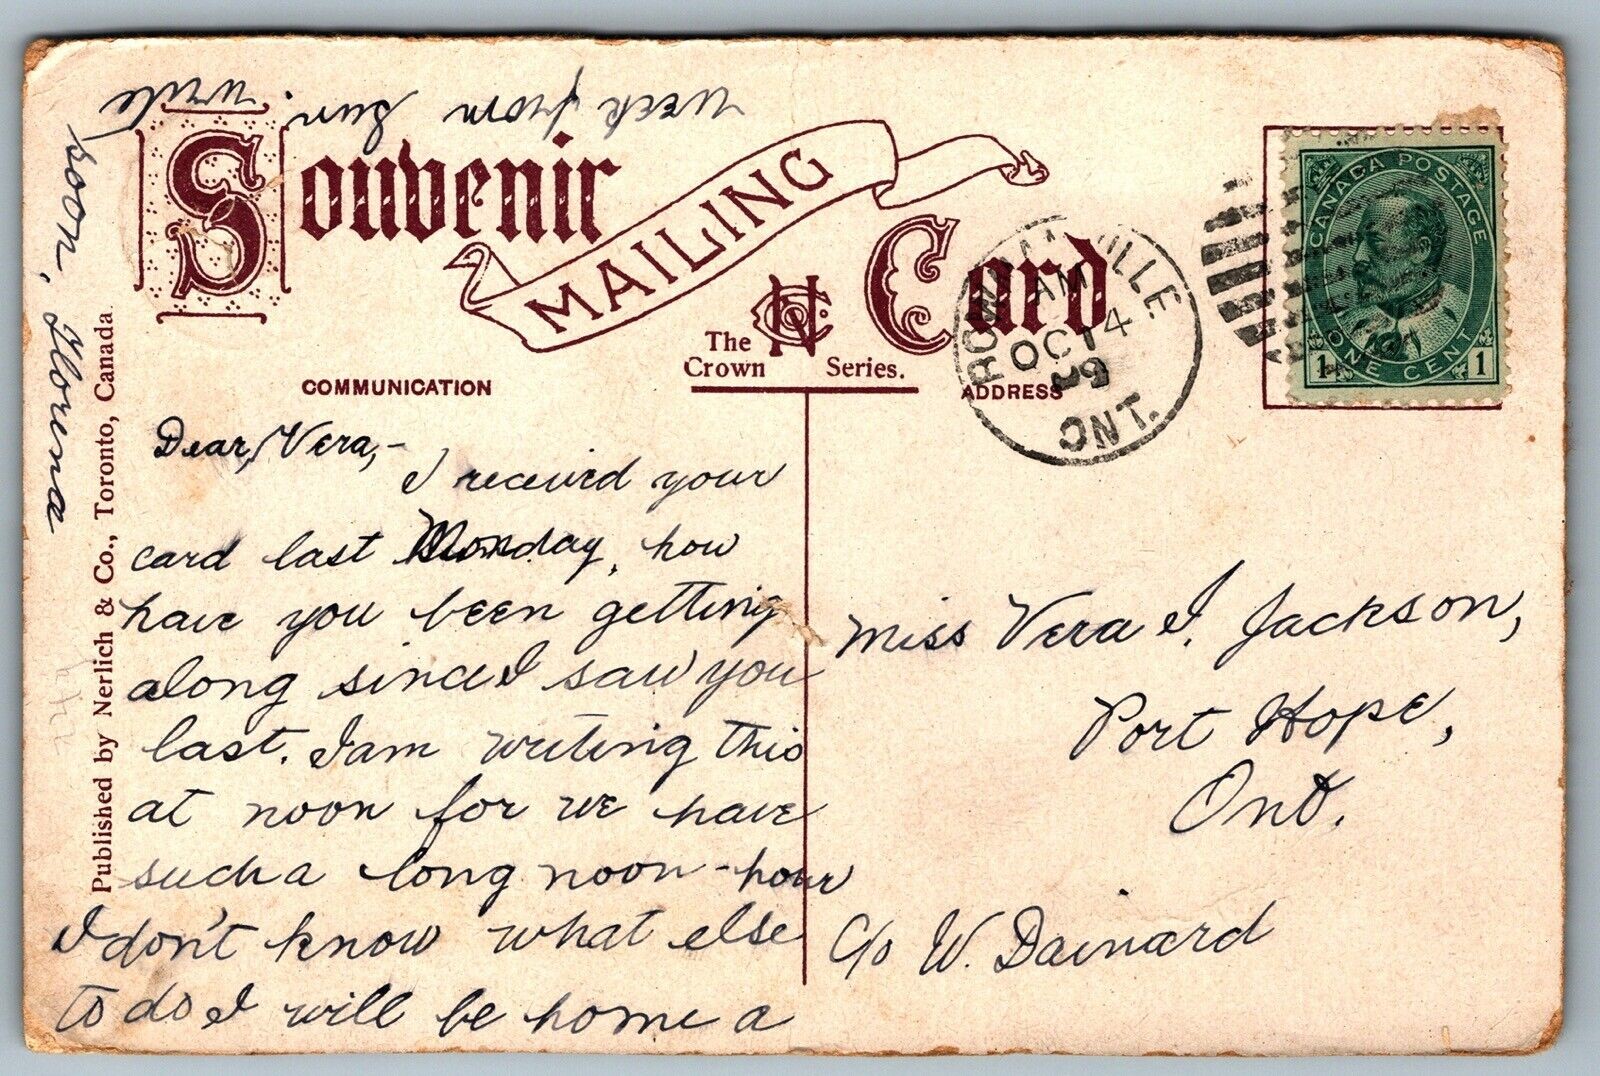 Souvenir
MAILING
Card
The Crown Series.
COMMUNICATION
ADDRESS
CANADA POSTAGE
ONE CENT
1 1
AM
OCT 4
09
ONT.
Dear, Vera,-
I received your
card last Monday, how
have you been getting
along since I saw you
last. I am writing this
at noon for we have
such a long noon-hour
I don't know what else
to do I will be home a
week from Sun. write
soon, Florena
Miss Vera I. Jackson,
Port Hope,
Ont.
c/o W. Dainard
Published by Nerlich & Co., Toronto, Canada.